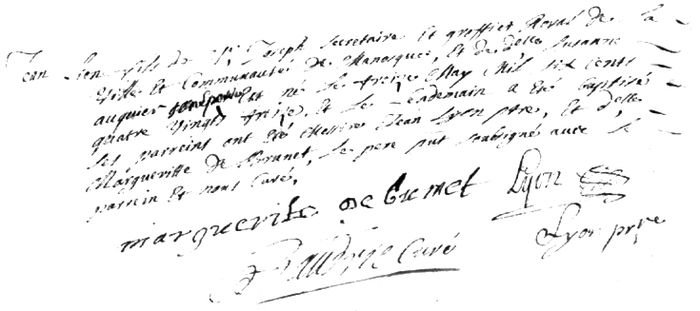 Jean Lyon fils de Sr Joseph Secretaire Et greffier Royal de la
Ville Et Communauté de Manosque, Et de delle Susanne
auguier Est né le treize May Mil six Cents
quatre Vingts treize, Et le lendemain a Eté baptisé
Ses parreins ont Eté Messire Jean Lyon ptre, Et delle
Margueritte de Brunet, le pere put soubsigné avec le
parrein Et nous Curé,
marguerite de brunet Lyon
Lyon ptre
Curé